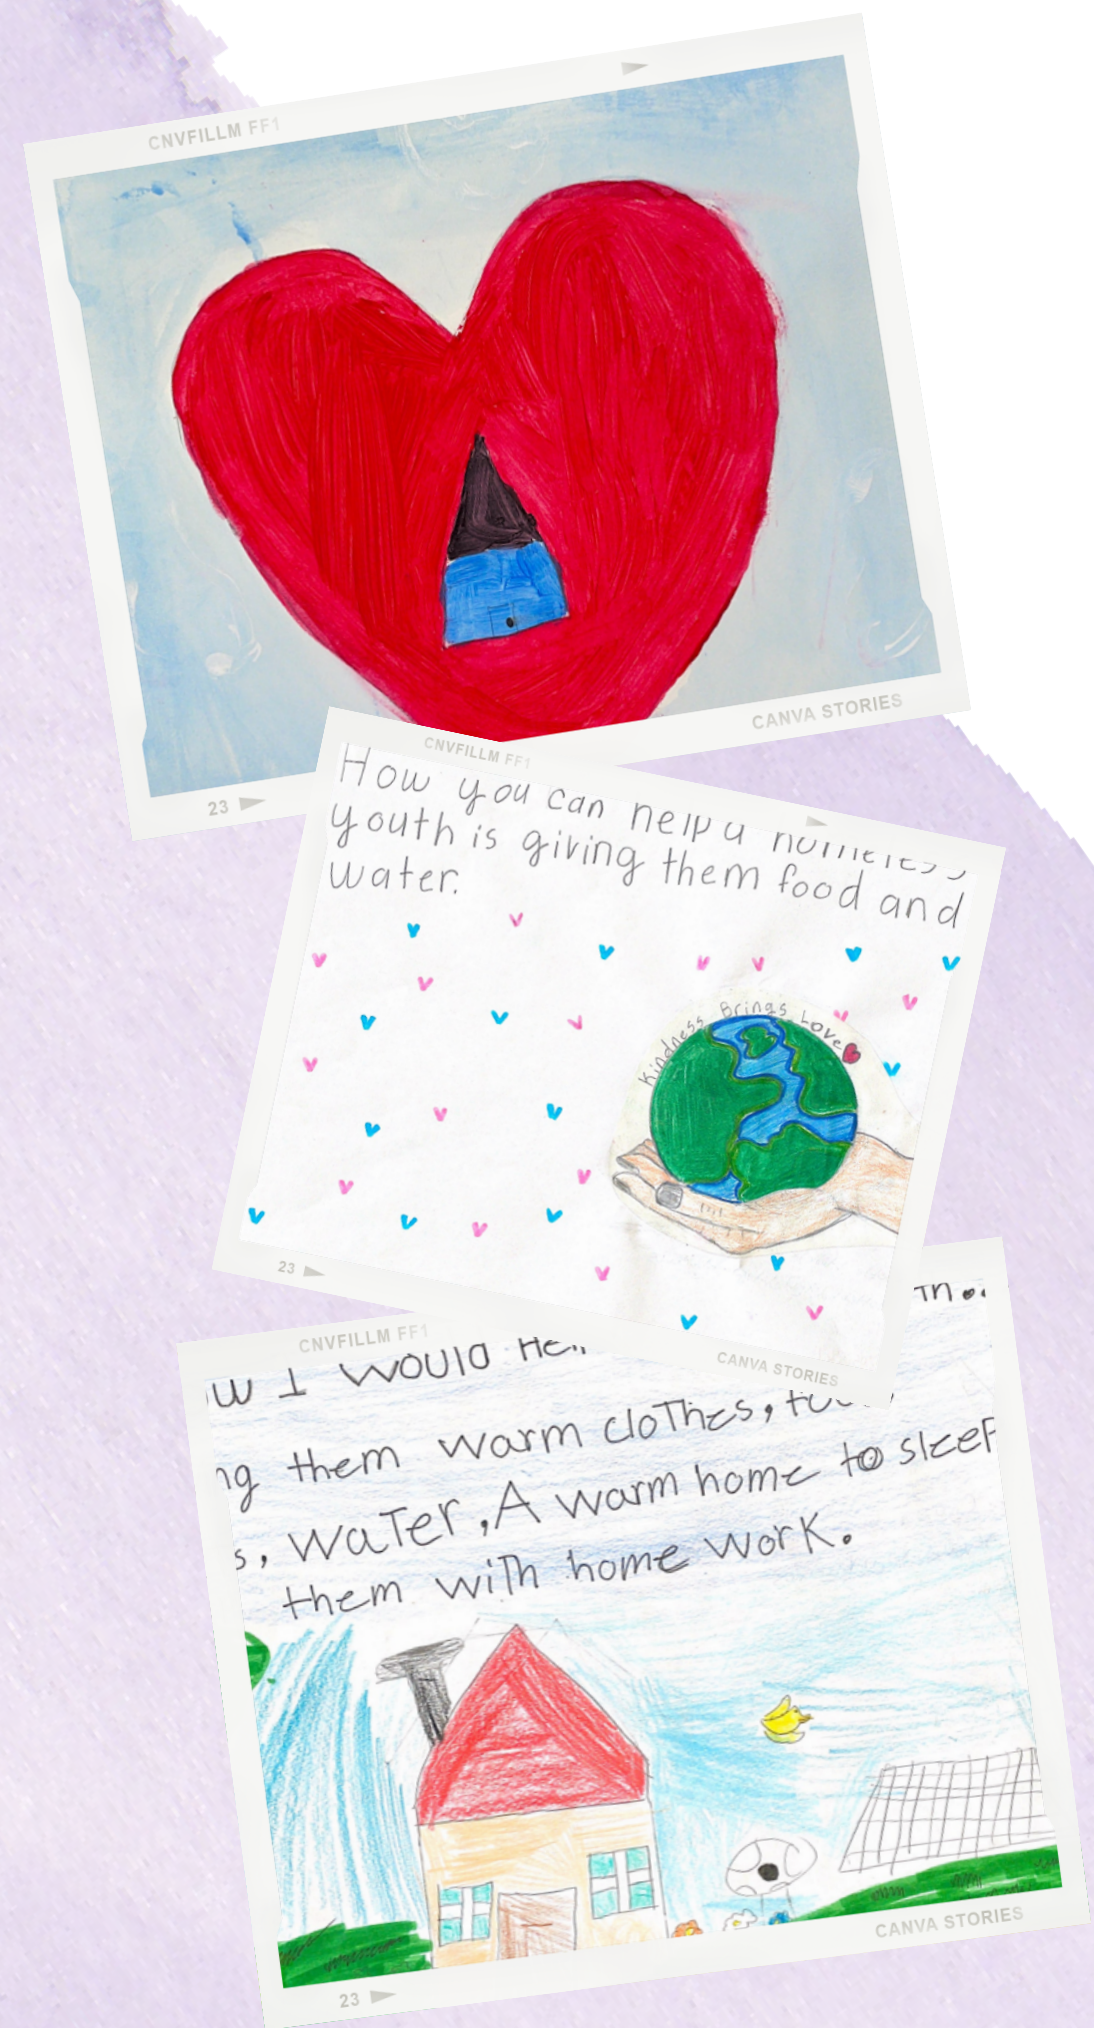 CNVFILLM FF1
CANVA STORIES
23
CNVFILLM FF1
How you can help a homeless
youth is giving them food and
water.
Kindness Brings Love
23
CANVA STORIES
CNVFILLM FF1
I would
them warm cloThes,
water, A warm home to sleep
them wiTh home work.
CANVA STORIES
23